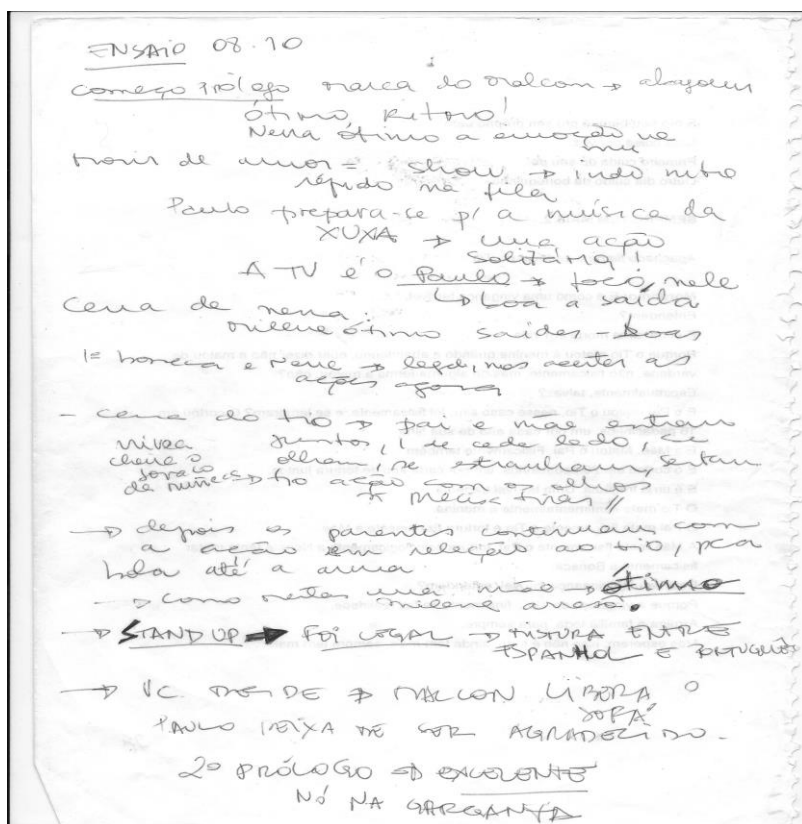 ENSAIO 08.10
começo prólogo marca do malcon → abajour
ótimo, ritmo!
Nena ótimo a emoção
de amor = show → tudo muito
rápido na fila
Paulo prepara-se p/ a música da
XUXA → uma ação
solitária!
A TV é o Paulo → foco nele
↳ boa a saída
cena de nena
milene ótimo saídas - boas
1= boneca e nene → legal, mas acertar as
ações agora
- cena do tio → pai e mãe entram
juntos, 1 de cada lado, se
olham, se estranham, tem
nivea
cheira o
sovaco
da → tio ação com os olhos
* precisa tirar //
→ depois os parentes continuam com
a ação em relação ao tio, pea
bola até a arma
→ como nestas uma mão → ótimo
milene arrasô.
→ STAND UP → FOI LEGAL → MISTURA ENTRE
ESPANHOL E PORTUGUÊS
→ VC. DECIDE → MALCON LIBERA O
SOFÁ
PAULO DEIXA DE SER AGRADECIDO.
2º PRÓLOGO → EXCELENTE
NÓ NA GARGANTA